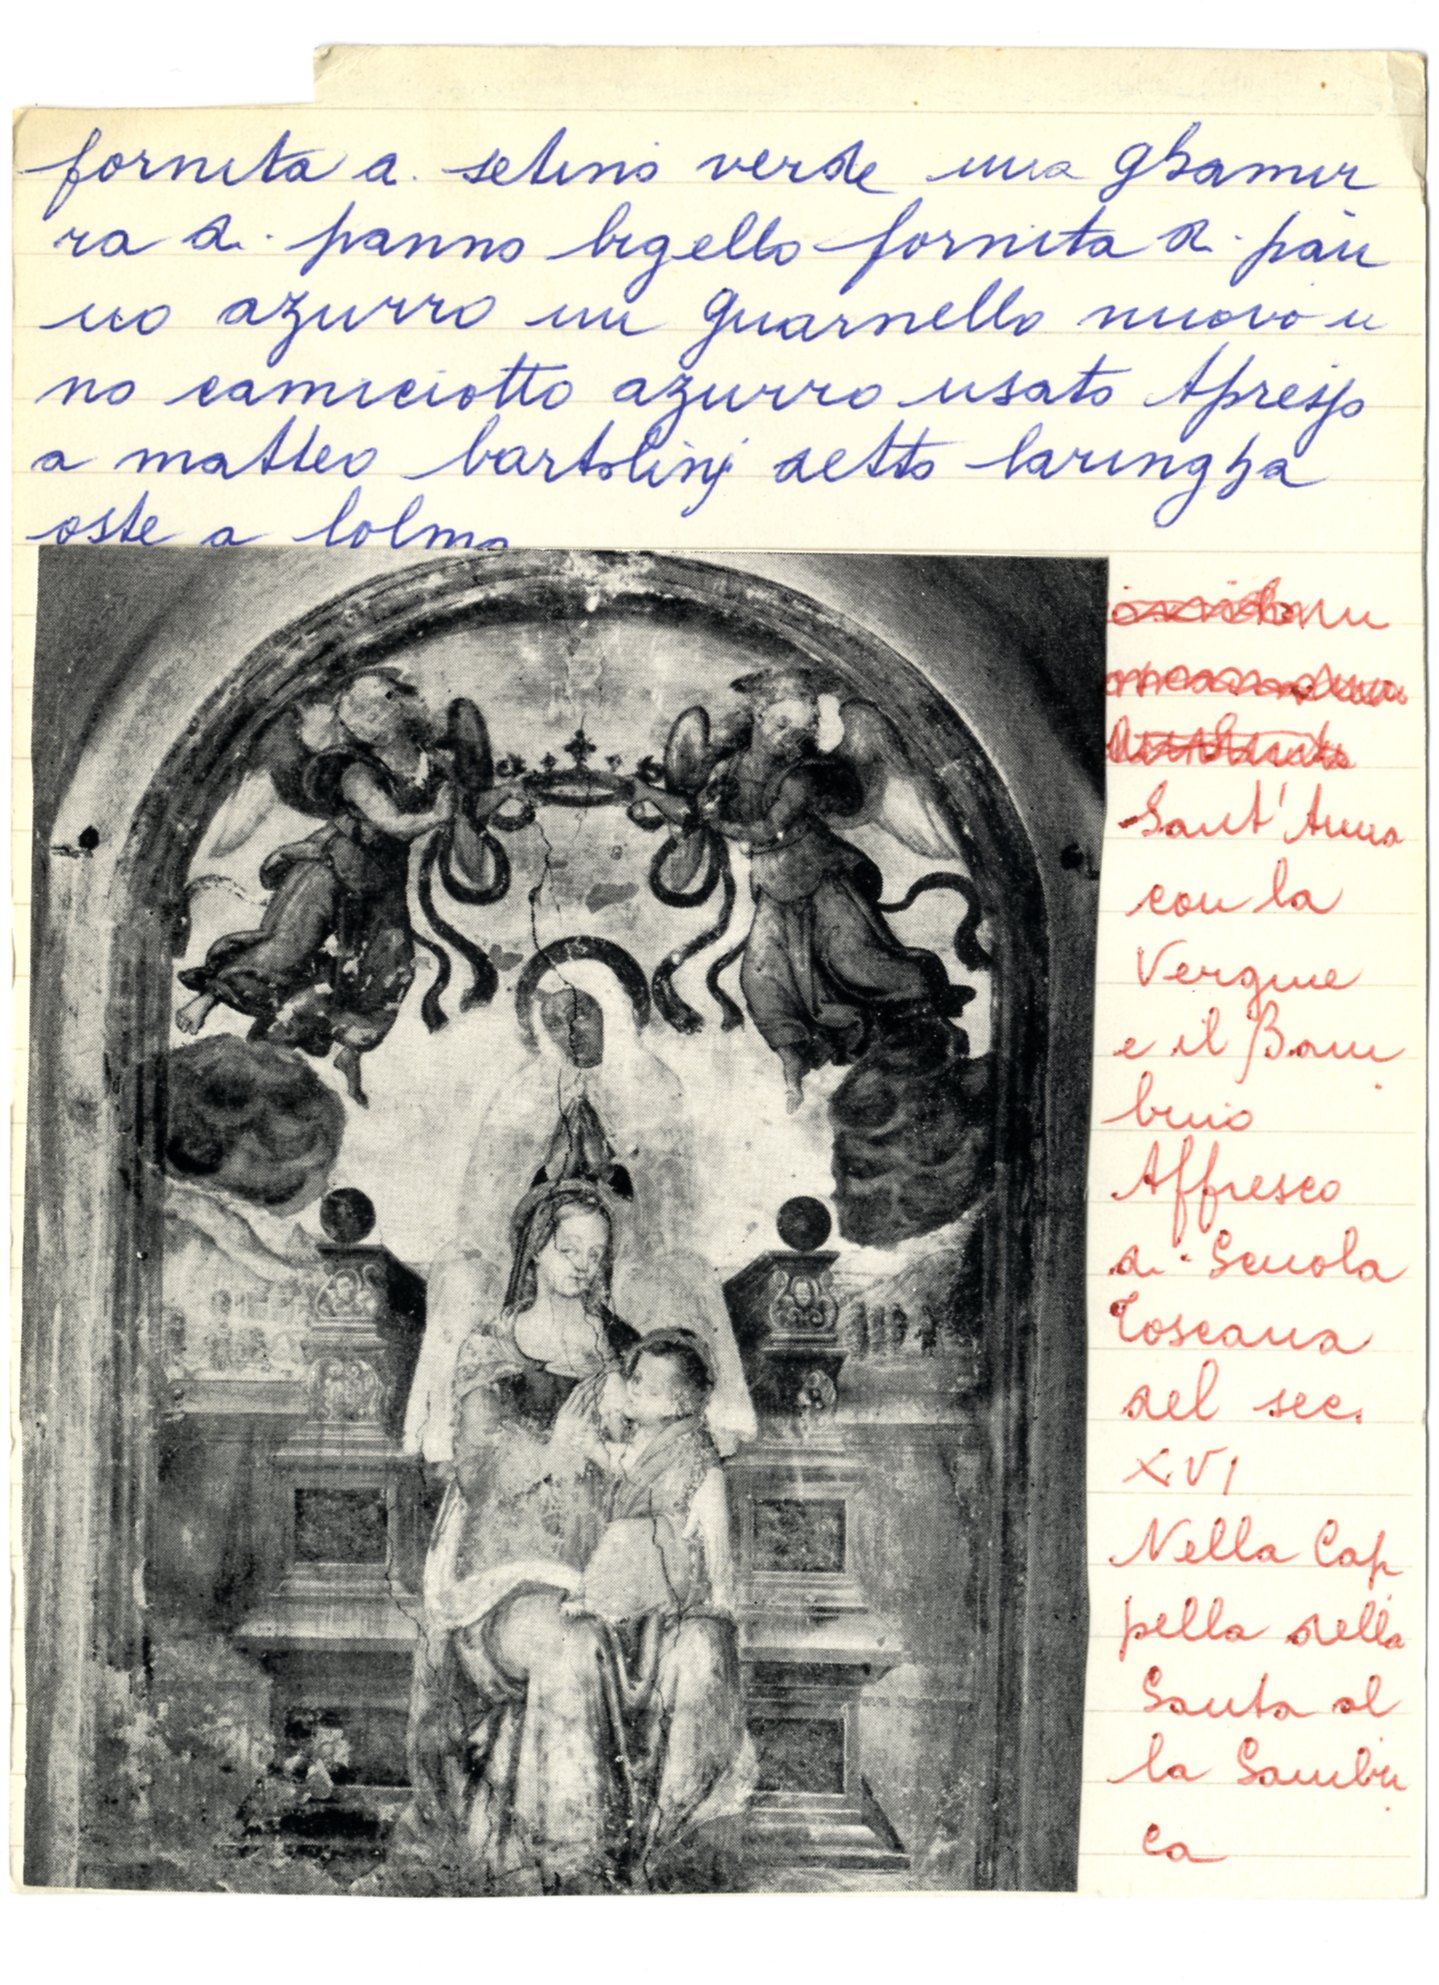 fornita di setino verde una ghamur
ra di panno bigello fornita di pan
no azurro un guarnello nuovo u
no camiciotto azurro usato Apresso
a matteo bartolinj detto laringha
oste a lolmo
Sant'Anna
con la
Vergine
e il Bam
bino
Affresco
di Scuola
Toscana
del sec.
XVI
Nella Cap
pella della
Santa al
la Sambu
ca